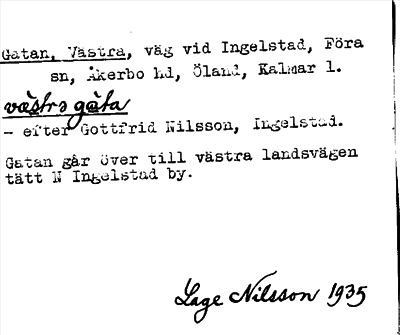 Gatan, Västra, väg vid Ingelstad, Föra
sn, Åkerbo hd, Öland, Kalmar l.
västra gata
- efter Gottfrid Nilsson, Ingelstad.
Gatan går över till västra landsvägen
tätt N Ingelstad by.
Lage Nilsson 1935